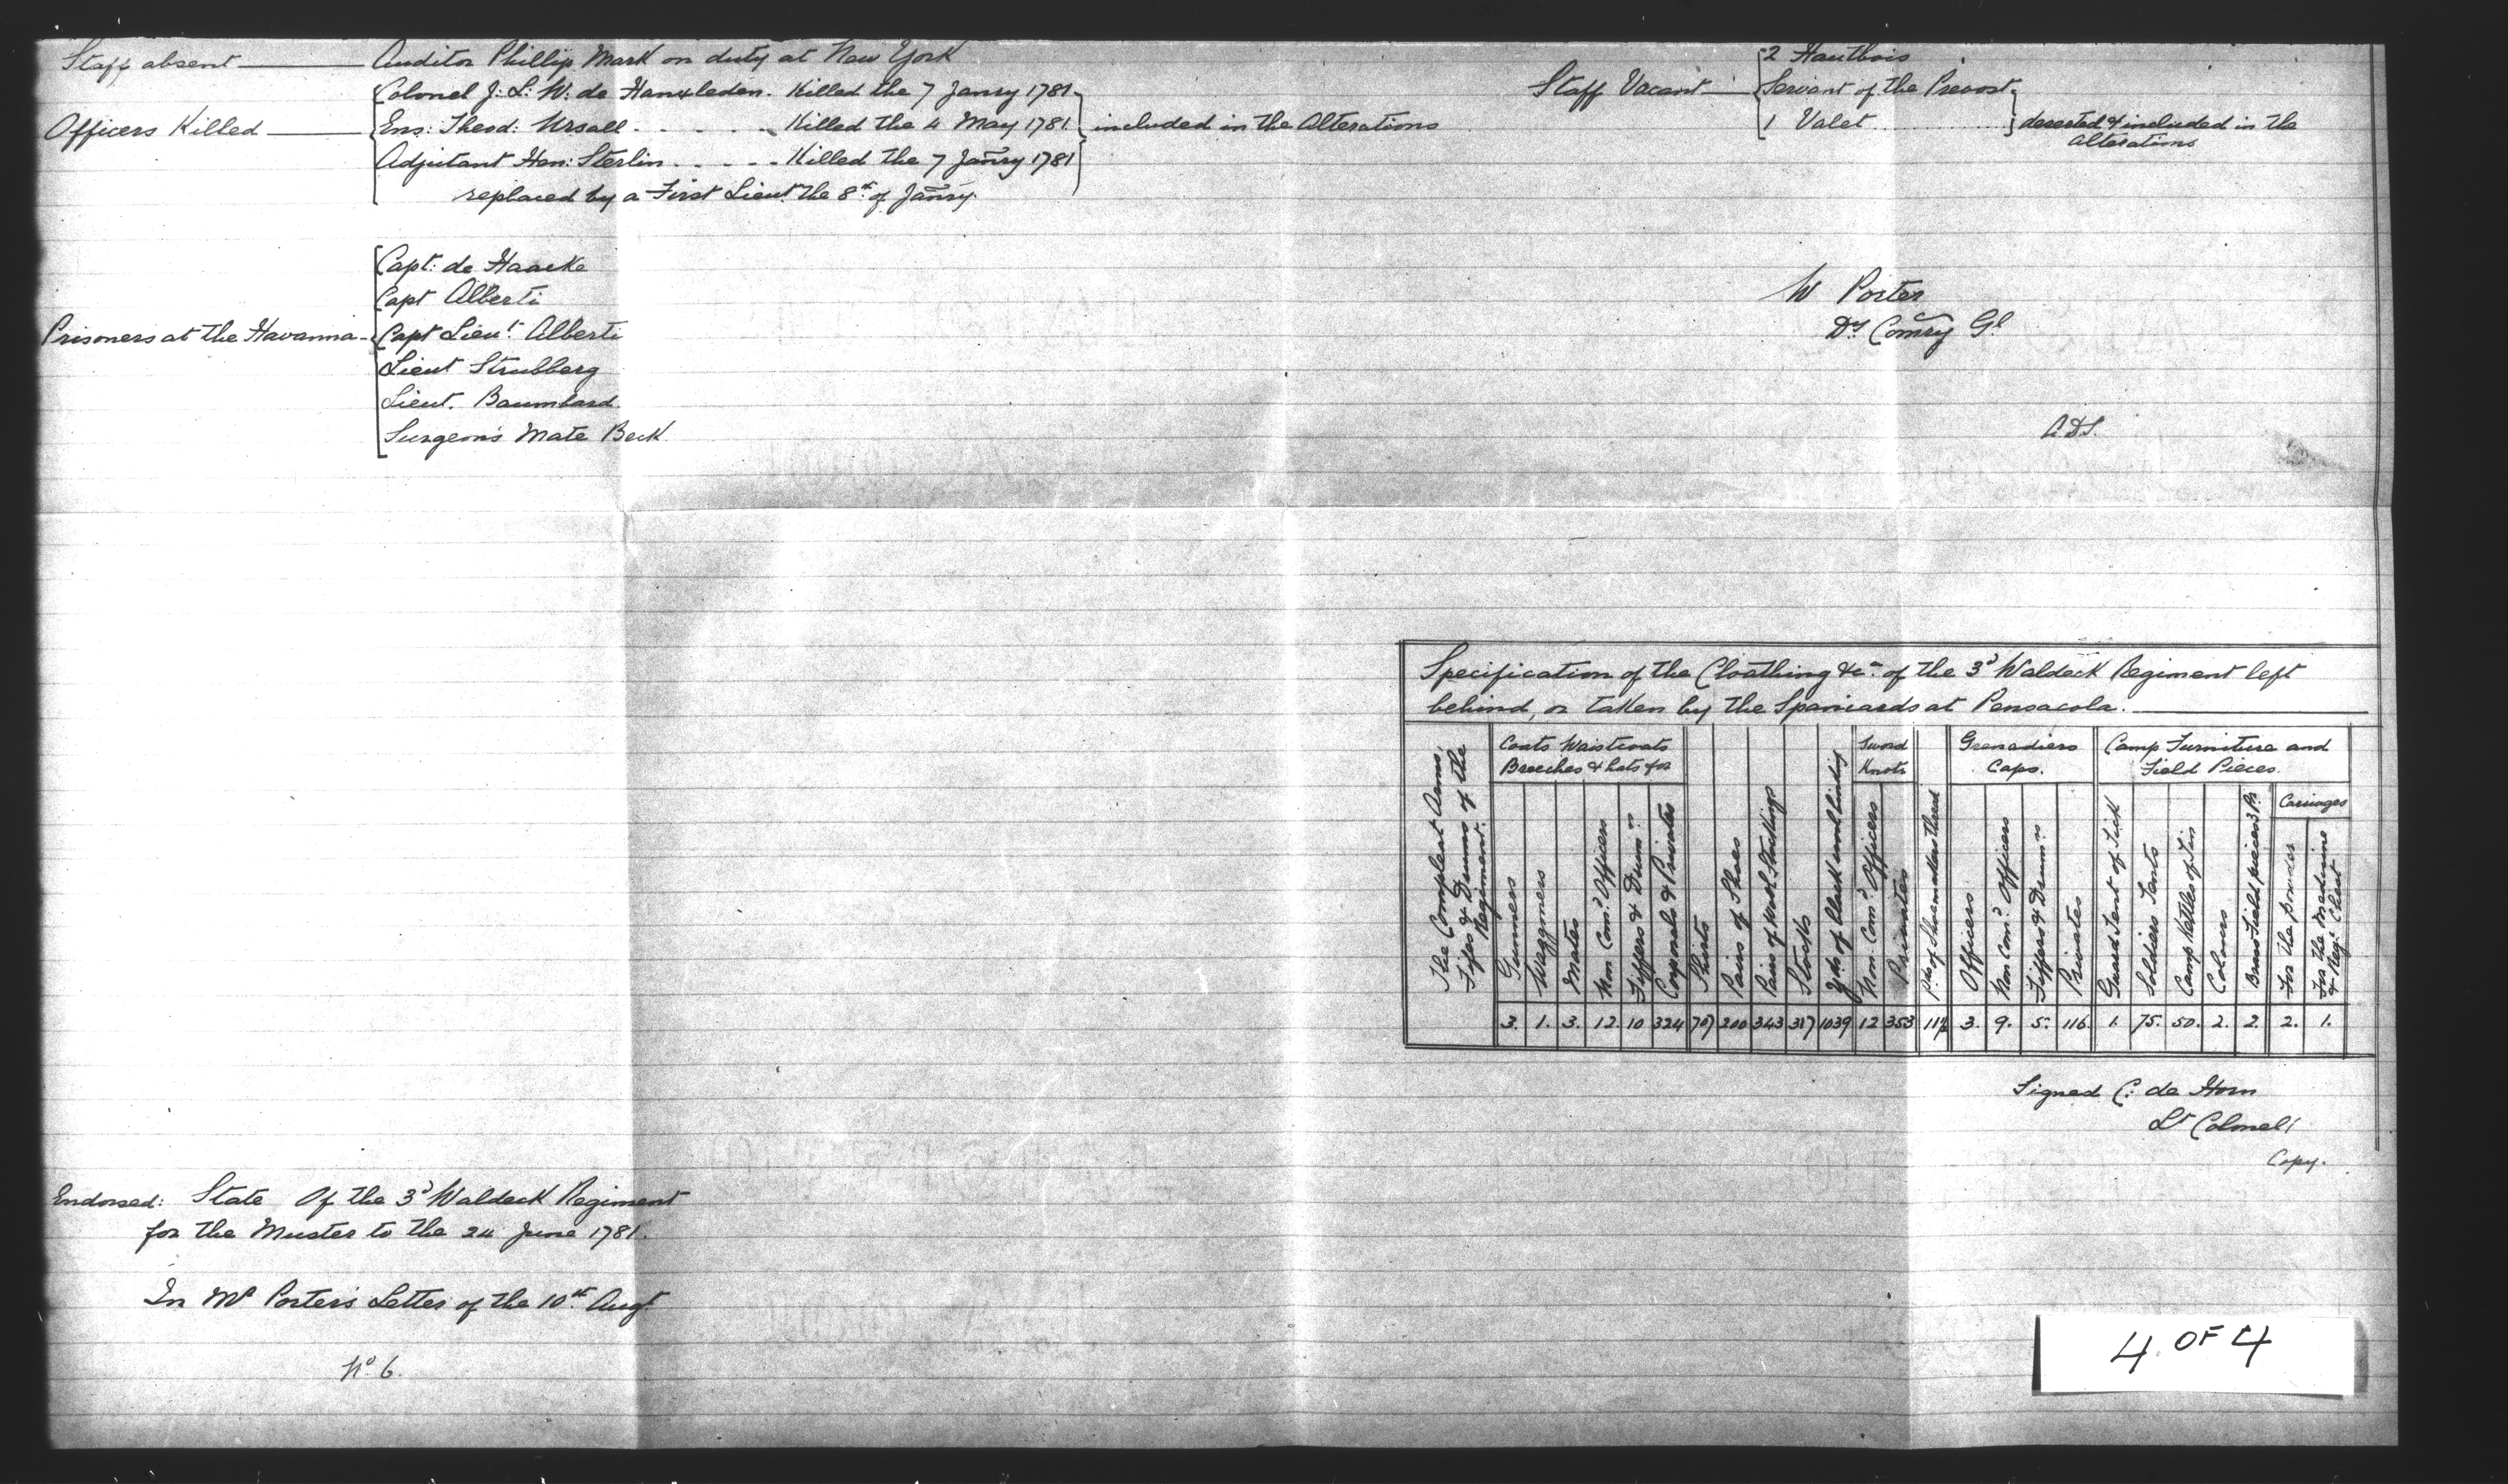 Staff absent Auditor Phillip Mark on duty at New York
Officers Killed
Colonel J: L: W: de Hanxleden. Killed the 7 Janry 1781
Ens: Theod: Ursall. Killed the 4 May 1781
Adjutant Hen: Sterlin. Killed the 7 Janry 1781
included in the Alterations
replaced by a First Lieut. the 8th of Janry.
Staff Vacant
2 Hautbois
Servant of the Provost
1 Valet
deserted & included in the
Alterations
Prisoners at the Havanna
Capt: de Haacke
Capt Alberti
Capt Lieut. Alberti
Lieut Strubberg
Lieut. Baumbard.
Surgeon's Mate Beck
W Porter
Dy Comry Gl
A.D.S.
Specification of the Cloathing &ca. of the 3d Waldeck Regiment left
behind, or taken by the Spaniards at Pensacola.
The Compleat Arms,
Fifes & Drums of the
Regiment.
Coats Waistcoats
Breeches & hats for
Gunners
Waggoners
Mates
Non Comd. Officers
Fiffers & Drumrs
Corporals & Privates
Shirts
Pairs of Shoes
Pairs of
Stockings
Stocks
Yds of black
binding
Sword
Knots
Non. Comd. Officers
Privates
Pds. of Shoemakers thread
Grenadiers
Caps.
Officers
Non Comd. Officers
Fiffers & Drumrs
Privates
Camp Furniture and
Field Pieces.
Guard Tent of Tick
Soldiers Tents
Camp Kettles of Tin
Colours
Brass Field pieces 3 Pr.
Carriages
For the powder
For the Medicine
& Regt. Chest
3. 1. 3. 12. 10 324 707 200 343 317 1039 12 353 3. 9. 5. 116. 1. 75. 50. 2. 2. 2. 1.
Signed C: de Horn
Lt Colonel
Copy.
Endorsed: State Of the 3d Waldeck Regiment
for the Muster to the 24 June 1781.
In Mr Porter's Letter of the 10th Augt.
No. 6.
4 OF 4